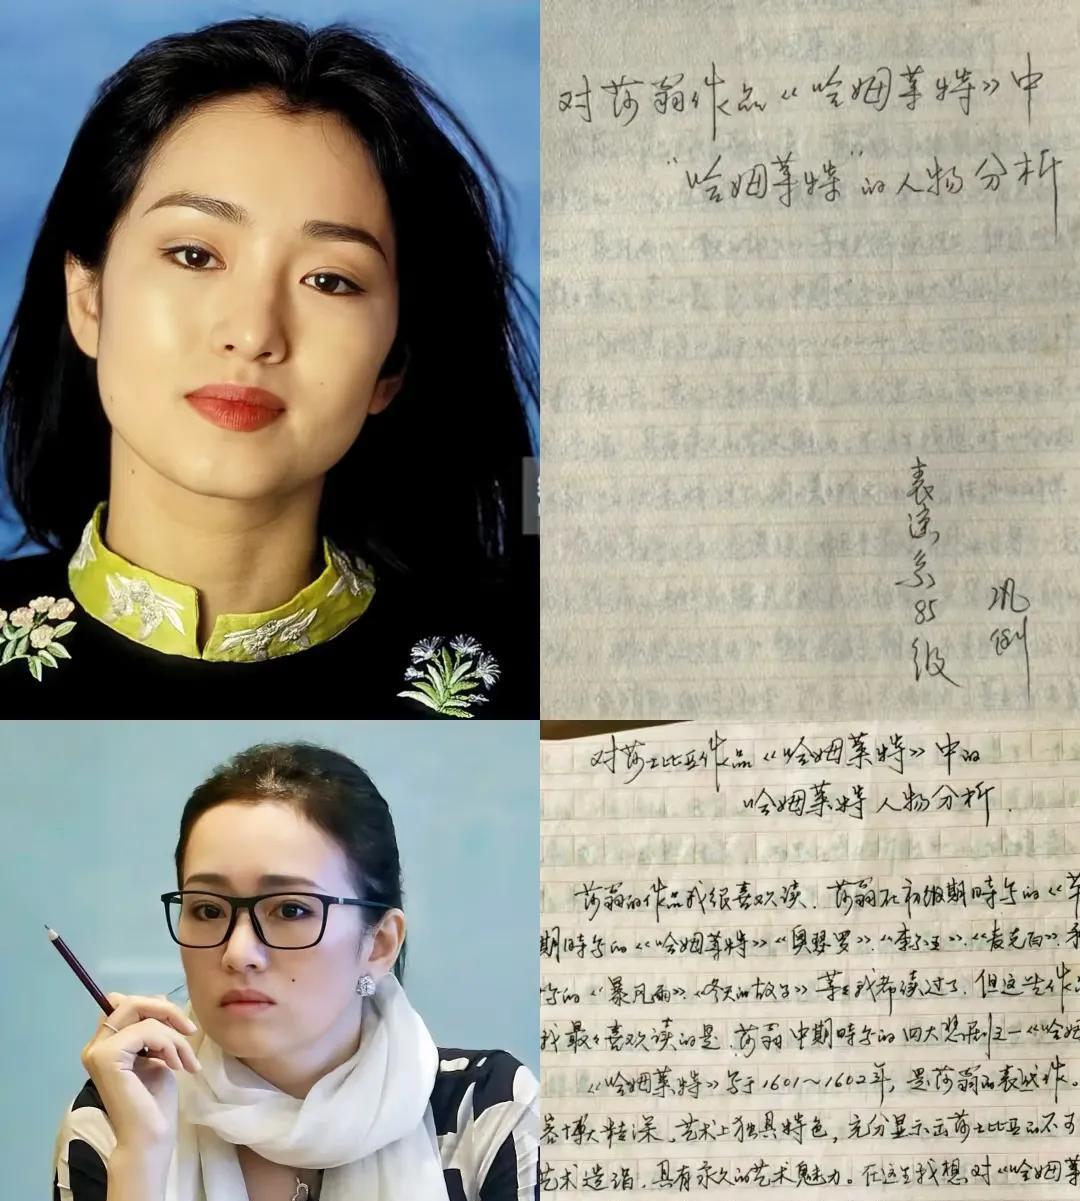 对莎翁作品《哈姆莱特》中
"哈姆莱特"的人物分析
表演系85级
巩俐
对莎士比亚作品《哈姆莱特》中的
哈姆莱特人物分析.
莎翁的作品我很喜欢读. 莎翁在初级期時写的《
期時写的《哈姆莱特》《奥瑟罗》.《李尔王》.《麦克白》.
写的《暴风雨》.《冬天的故事》等我都读过了. 但这些作
我最々喜欢读的是. 莎翁中期時写的四大悲剧之一《哈姆
《哈姆莱特》写于1601~1602年, 是莎翁的
容博大精深. 艺术上独具特色, 充分显示出莎士比亚的不可
艺术造诣. 具有永久的艺术魅力。在这里我想对《哈姆莱